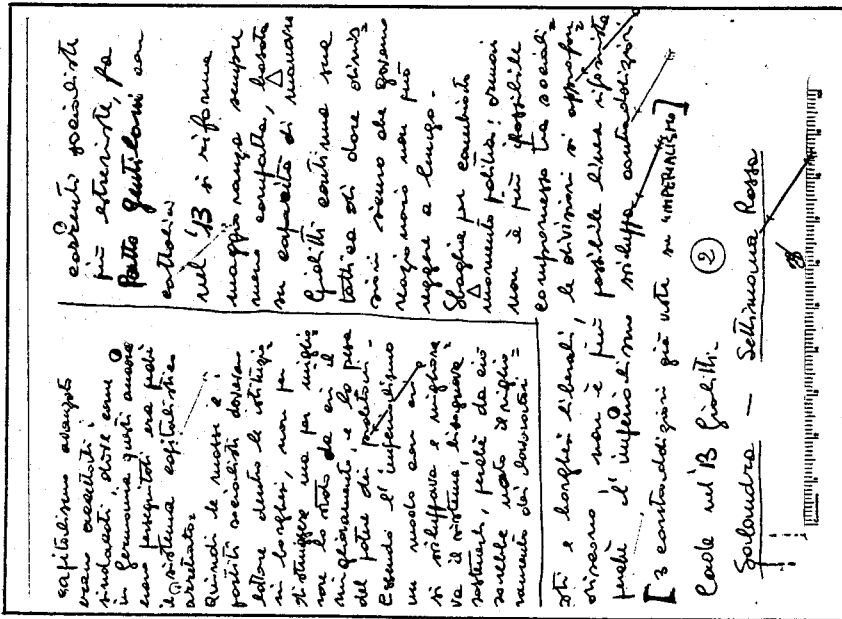 capitalismo avanzato
erano accettati i
sindacati, dove come
in Germania questi ancora
erano perseguitati era perché
il sistema capitalistico
arretrato
Quindi le masse e i
partiti socialisti dovevano
lottare dentro le istituzio=
ni borghesi, non per
distruggere ma per miglio=
rare lo stato da cui il
miglioramento, e la presa
del potere dei proletari.
Essendo l'imperialismo
un modo con cui
si sviluppava e migliora
va il sistema, bisognava
sostenerlo, perché da ciò
sarebbe nato il miglio=
ramento dei lavoratori
correnti socialiste
più estremiste, fa
Patto Gentiloni con
cattolici
nel '13 si riforma
maggioranza sempre
meno compatta, basata
su capacità di manovre
Giolitti continua sua
tattica di dare dimis=
sioni sicuro che governo
reazionario non può
reggere a lungo.
Sbaglia per cambiato
momento politico: ormai
non è più possibile
compromesso tra sociali=
sti e borghesi liberali, le divisioni si approfon=
discono, non è più possibile linea riformista
perché l'imperialismo sviluppa contraddizioni
[3 contraddizioni già viste su "IMPERIALISMO"]
Cade nel '13 Giolitti-
2
Salandra — Settimana Rossa